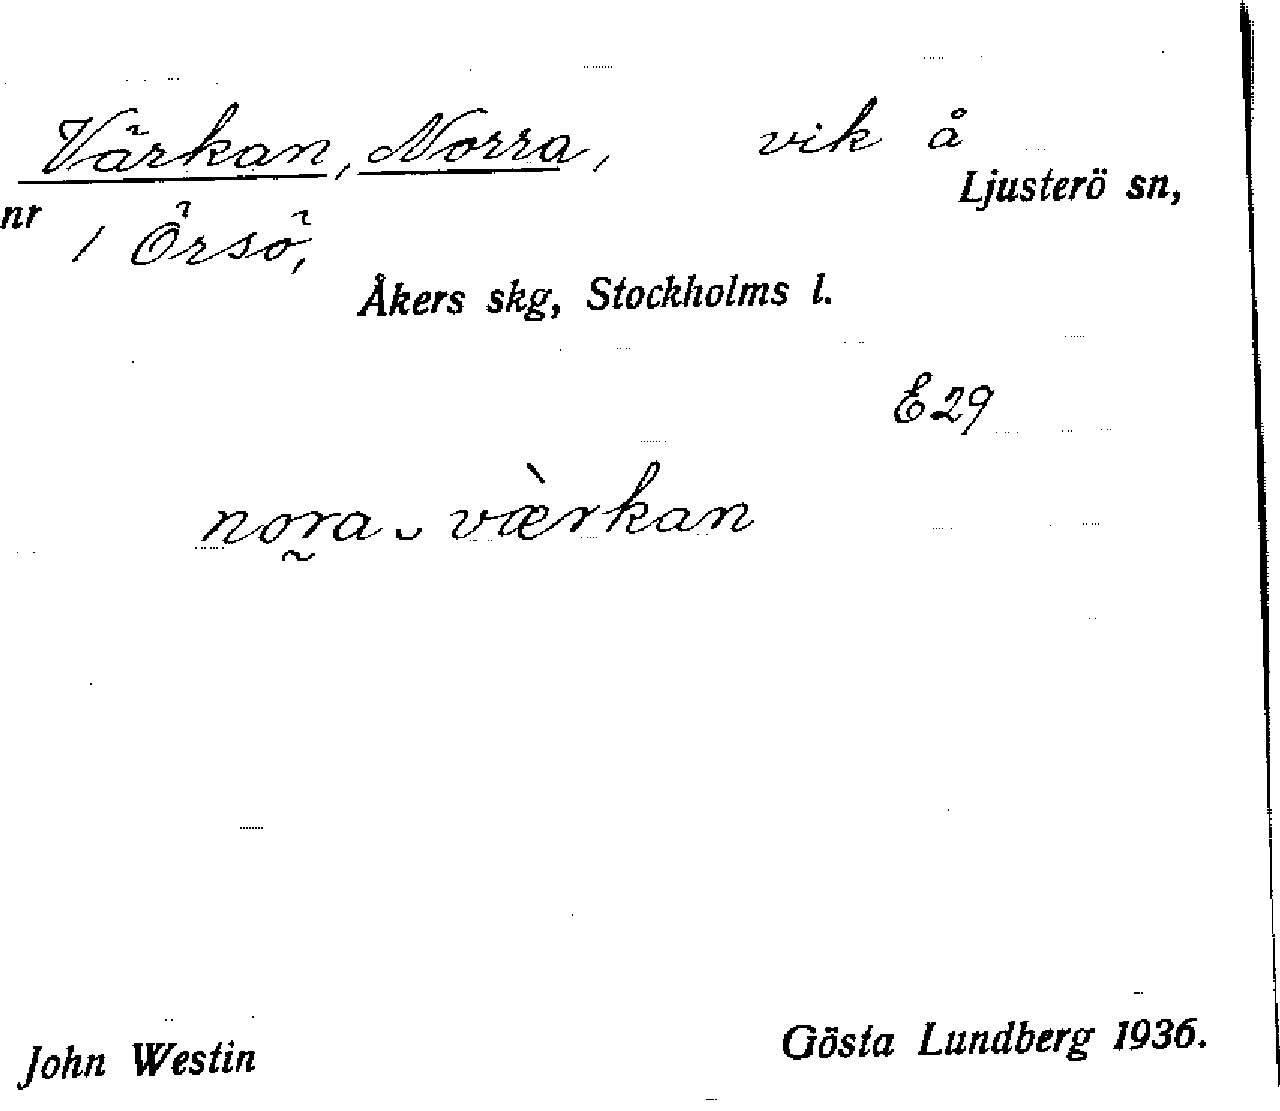 Värkan, Norra, vik å
Ljusterö sn,
nr 1 Örsö,
Åkers skg, Stockholms l.
E29
nora ‿ væ̀rkan
John Westin
Gösta Lundberg 1936.